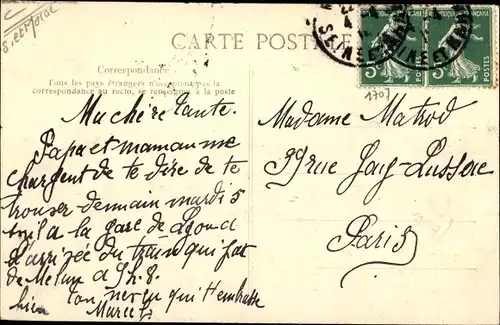 S. et Marne
CARTE POSTALE
Correspondance
Tous les pays étrangers n'acceptent pas la
correspondance au recto, se renseigner à la poste
Ma chère tante.
Papa et maman me
chargent de te dire de te
trouver demain mardi 5
à la gare de Lyon à
l'arrivée du train qui part
de Melun à 9h.8.
bien ton neveu qui t'embrasse
Marcel
POSTES
1707
Madame Matrod
99 rue Gay-Lussac
Paris